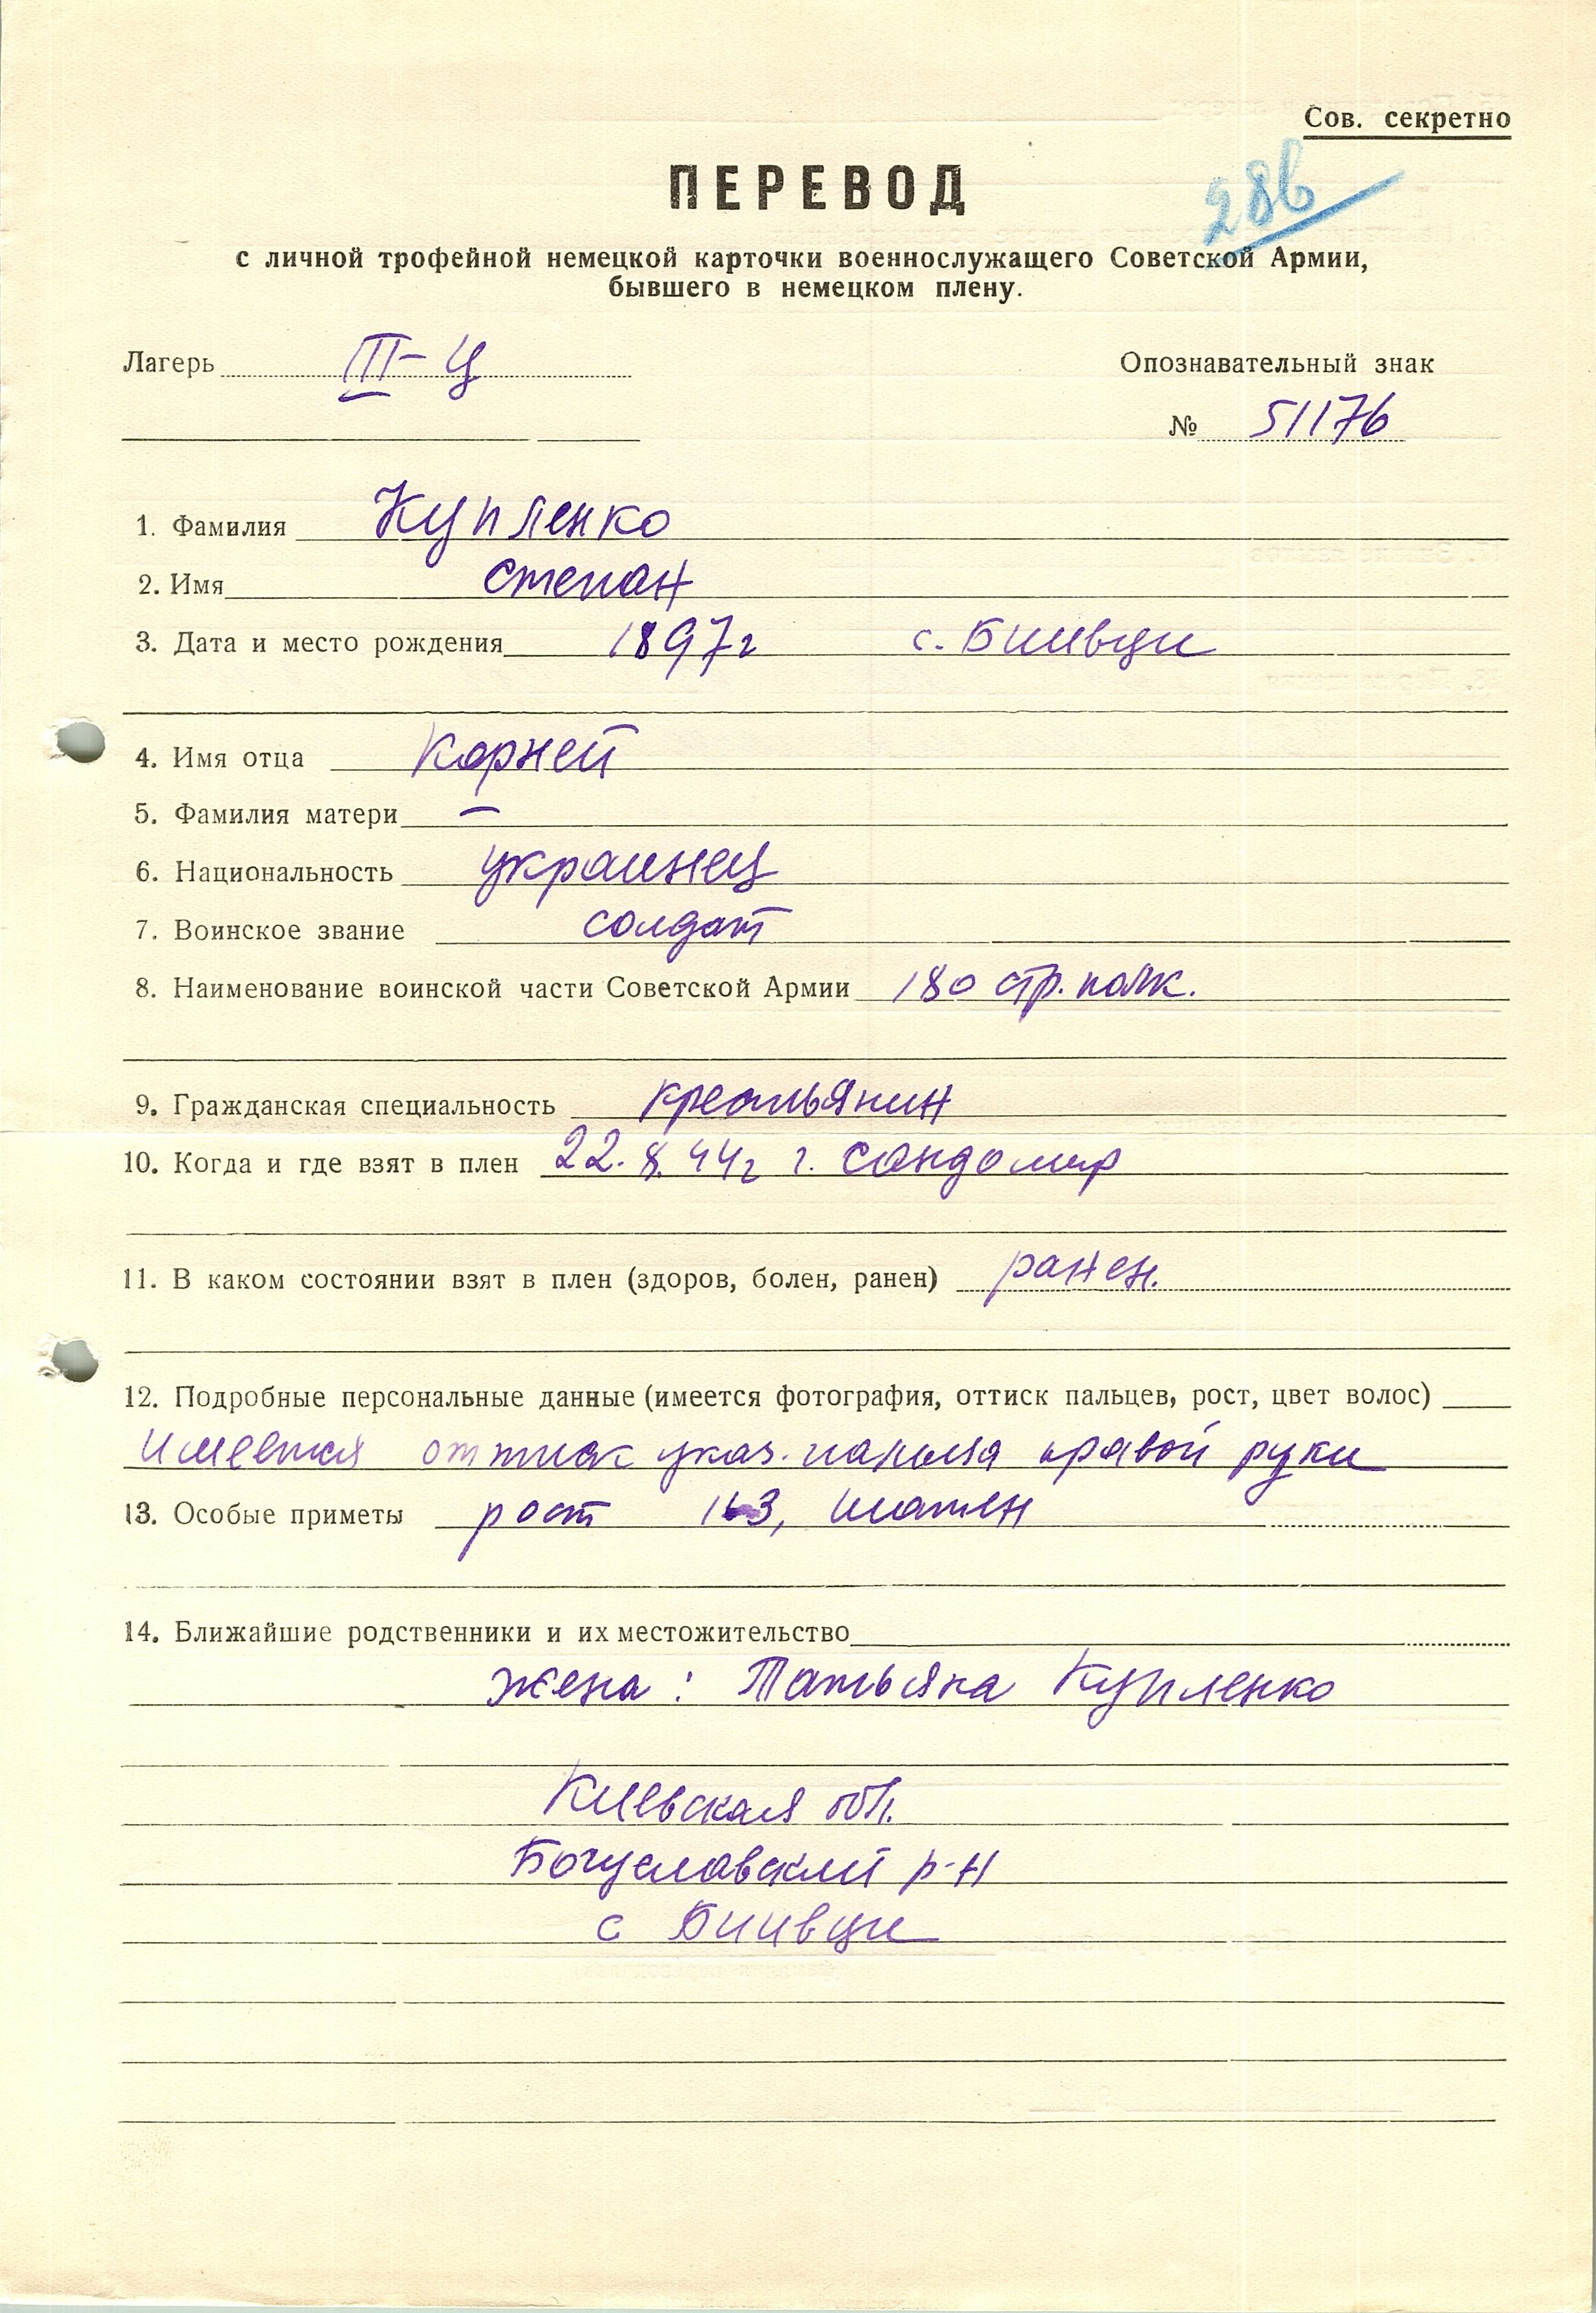 Сов. секретно
286
ПЕРЕВОД
с личной трофейной немецкой карточки военнослужащего Советской Армии,
бывшего в немецком плену.
Лагерь III-Ц
Опознавательный знак
№ 51176
1. Фамилия Купленко
2. Имя Степан
3. Дата и место рождения 1897г с. Биивци
4. Имя отца Корней
5. Фамилия матери —
6. Национальность украинец
7. Воинское звание солдат
8. Наименование воинской части Советской Армии 180 стр. полк.
9. Гражданская специальность крестьянин
10. Когда и где взят в плен 22.8.44г г. Сандомир
11. В каком состоянии взят в плен (здоров, болен, ранен) ранен.
12. Подробные персональные данные (имеется фотография, оттиск пальцев, рост, цвет волос)
Имеется оттиск указ. пальца правой руки
13. Особые приметы рост шатен
14. Ближайшие родственники и их местожительство
жена: Татьяна Купленко
Киевская обл.
Богуславский р-н
с Биивци